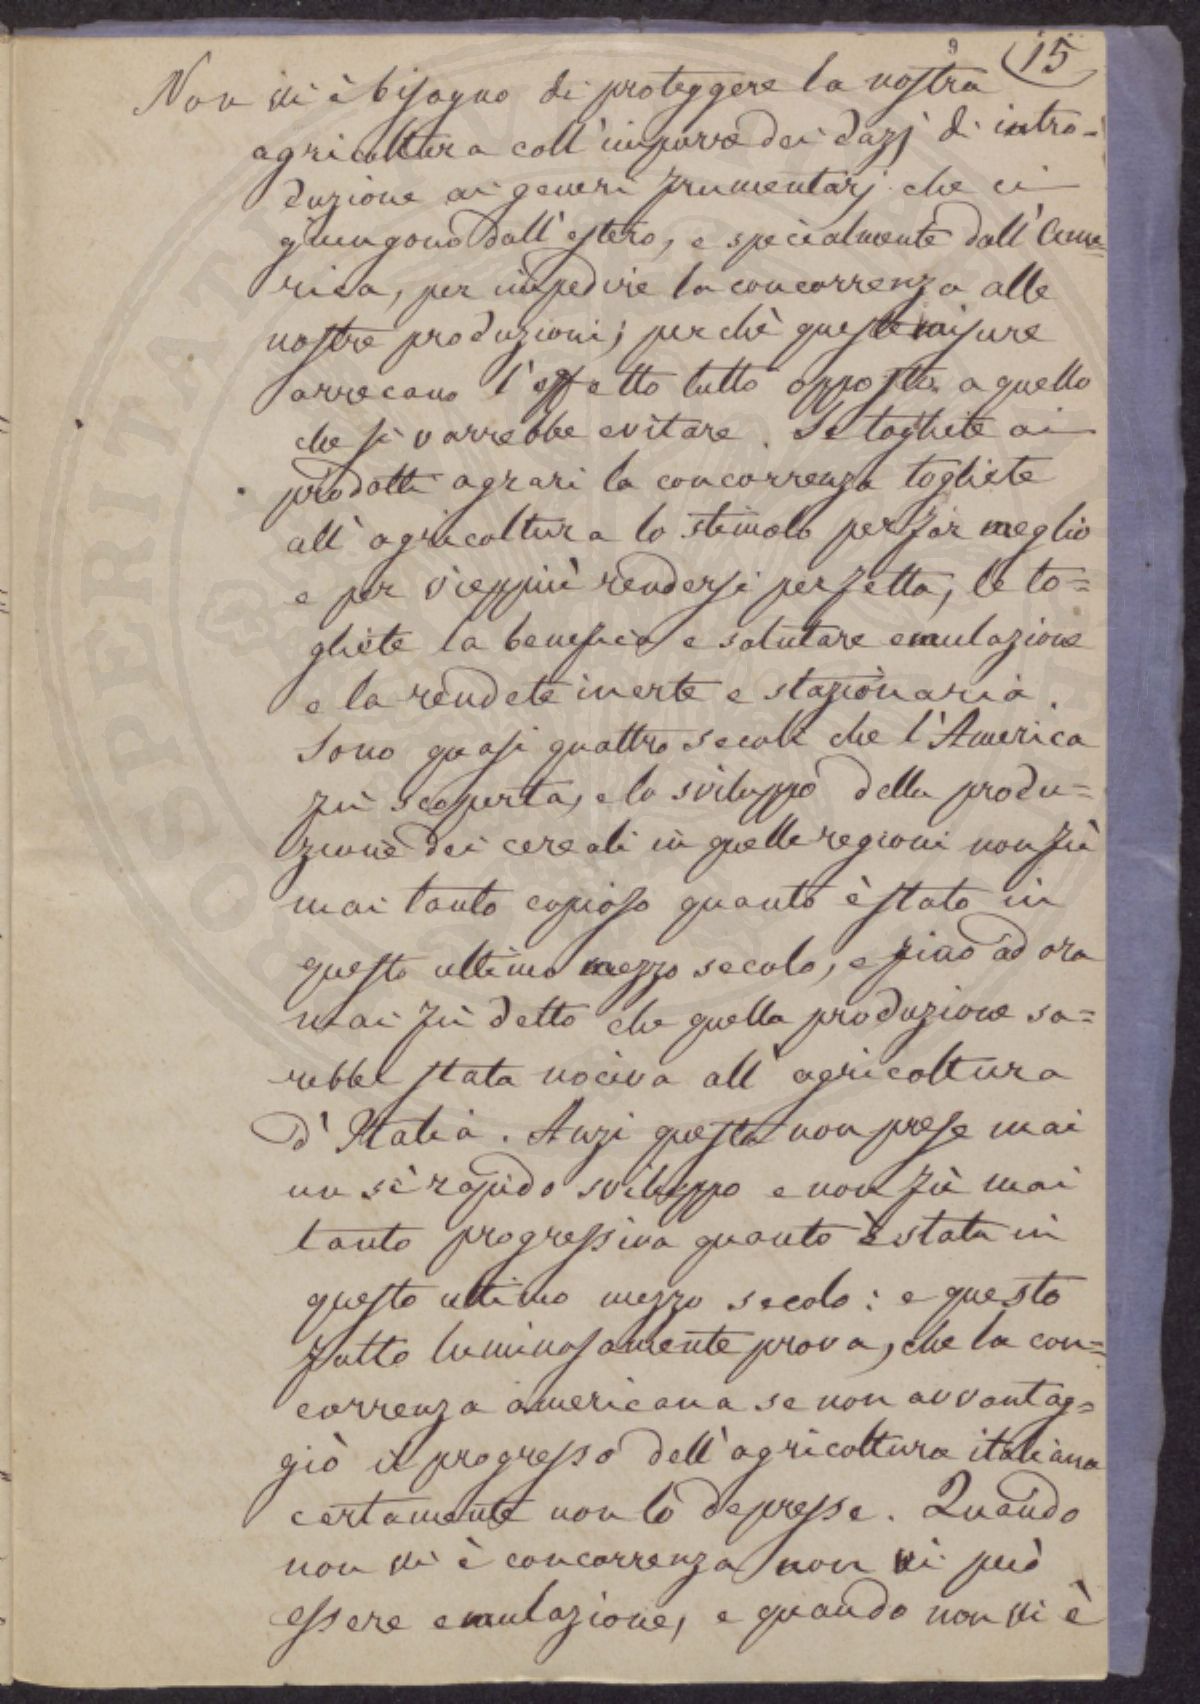 9 15
Non vi è bisogno di proteggere la nostra
agricoltura coll'imporre dei dazj di intro-
duzione ai generi frumentarj che ci
giungono dall'estero, e specialmente dall'Ame=
rica, per impedire la concorrenza alle
nostre produzioni; perchè queste misure
arrecano l'effetto tutto opposto a quello
che si vorrebbe evitare. Se togliete ai
prodotti agrari la concorrenza togliete
all'agricoltura lo stimolo per far meglio
e per vieppiù rendersi perfetta, le to=
gliete la benefica e salutare emulazione
e la rendete inerte e stazionaria.
Sono quasi quattro secoli che l'America
fù scoperta, e lo sviluppo della produ=
zione dei cereali in quelle regioni non fù
mai tanto copioso quanto è stato in
questo ultimo mezzo secolo, e fino ad ora
mai fù detto che quella produzione sa=
rebbe stata nociva all'agricoltura
d'Italia. Anzi questa non prese mai
un sì rapido sviluppo e non fù mai
tanto progressiva quanto è stata in
questo ultimo mezzo secolo: e questo
fatto luminosamente prova, che la con=
correnza americana se non avvantag=
giò il progresso dell'agricoltura italiana
certamente non lo depresse. Quando
non vi è concorrenza non vi può
essere emulazione, e quando non vi è
PROSPERITATI